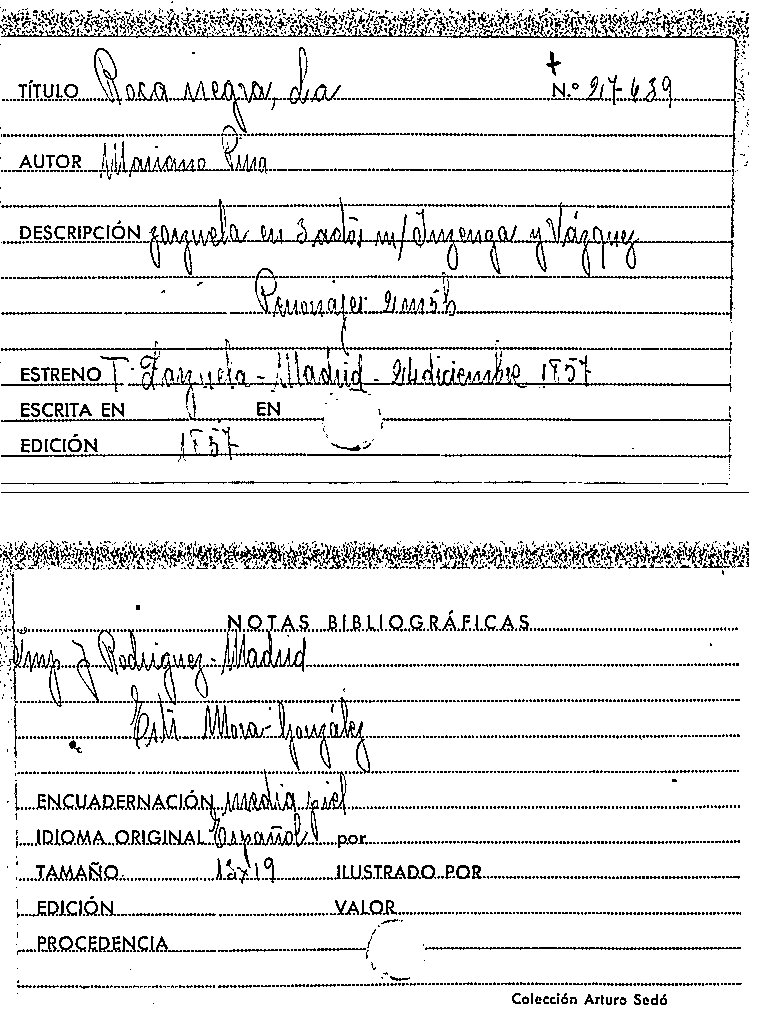 TÍTULO Rosa negra, La N.º 27-639
AUTOR Mariano Pina
DESCRIPCIÓN zarzuela en 3 actos m/ Inzenga y Vázquez
Personajes 2m5h
ESTRENO T. Zarzuela - Madrid - 24 diciembre 1857
ESCRITA EN EN
EDICIÓN 1857
NOTAS BIBLIOGRÁFICAS
Imp J Rodriguez - Madrid
Mora - González
ENCUADERNACIÓN media piel
IDIOMA ORIGINAL Español por
TAMAÑO 13x19 ILUSTRADO POR
EDICIÓN VALOR
PROCEDENCIA
Colección Arturo Sedó